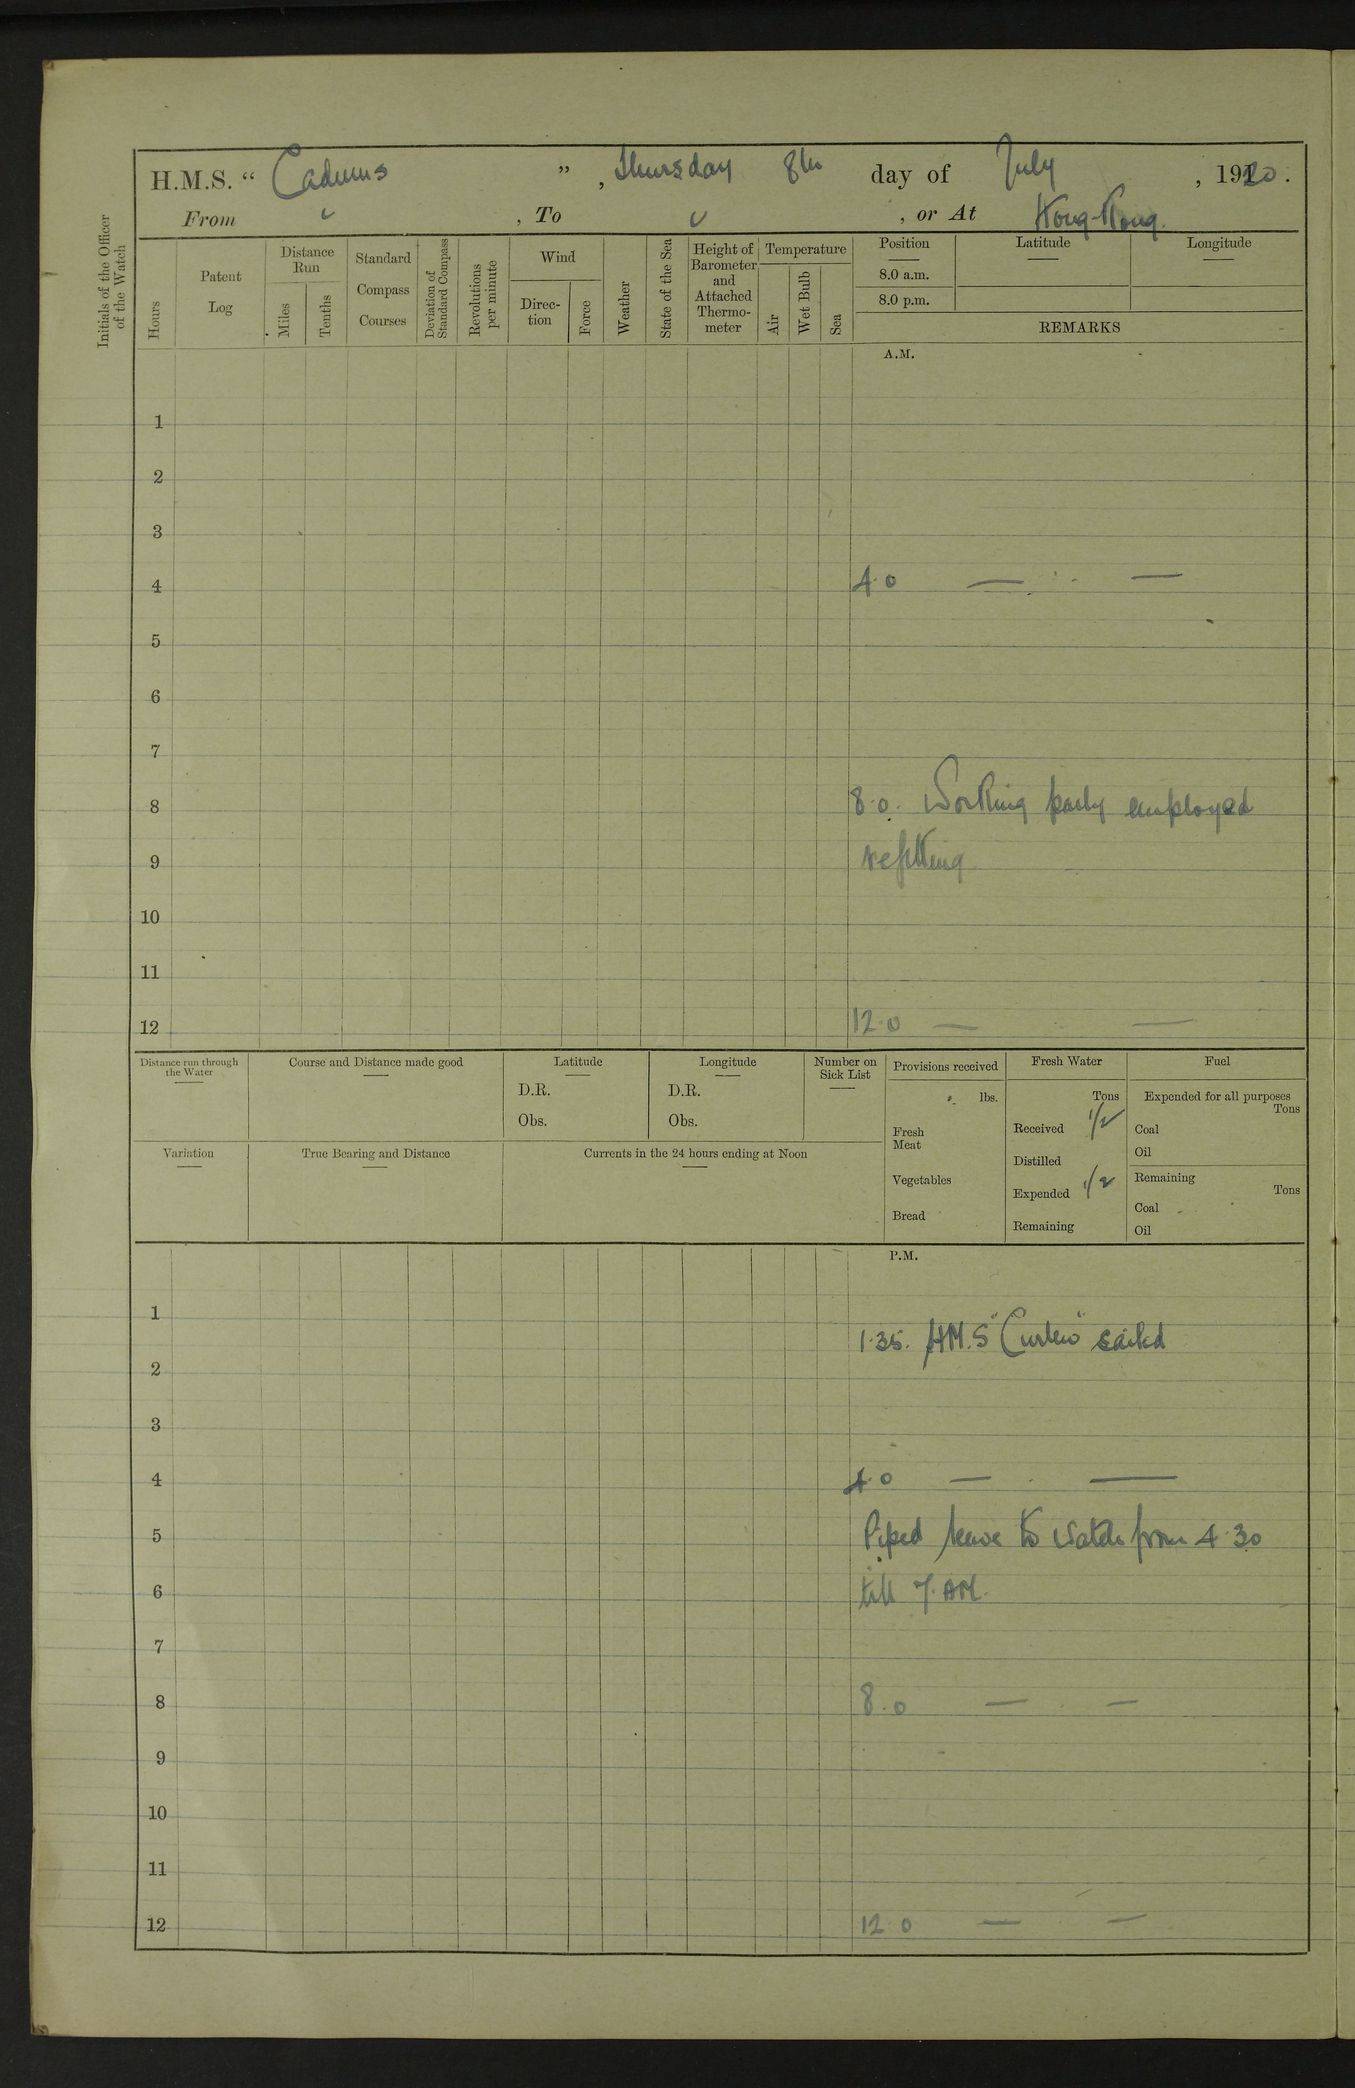 H.M.S. “ Cadmus ” , Thursday 8th day of July , 1920 .
From " , To " , or At Hong-Kong.
Initials of the Officer of the Watch
Hours
Patent Log
Distance Run
Miles
Tenths
Standard Compass Courses
Deviation of Standard Compass
Revolutions per minute
Wind
Direc-tion
Force
Weather
State of the Sea
Height of Barometer and Attached Thermo-meter
Temperature
Air
Wet Bulb
Sea
Position
Latitude
Longitude
8.0 a.m.
8.0 p.m.
REMARKS
A.M.
1
2
3
4 4.0 — —
5
6
7
8 8.0. Working party employed
9 refitting
10
11
12 12.0 — —
Distance run through the Water
Course and Distance made good
Latitude
D.R.
Obs.
Longitude
D.R.
Obs.
Number on Sick List
Variation
True Bearing and Distance
Currents in the 24 hours ending at Noon
Provisions received
lbs.
Fresh Meat
Vegetables
Bread
Fresh Water
Tons
Received 1/2
Distilled
Expended 1/2
Remaining
Fuel
Expended for all purposes
Tons
Coal
Oil
Remaining
Tons
Coal
Oil
P.M.
1
1.35. HM.S "Curlew" sailed
2
3
4 4.0 — —
5 Piped leave to watch from 4.30
6 till 7. AM.
7
8 8.0 — —
9
10
11
12 12 0 — —